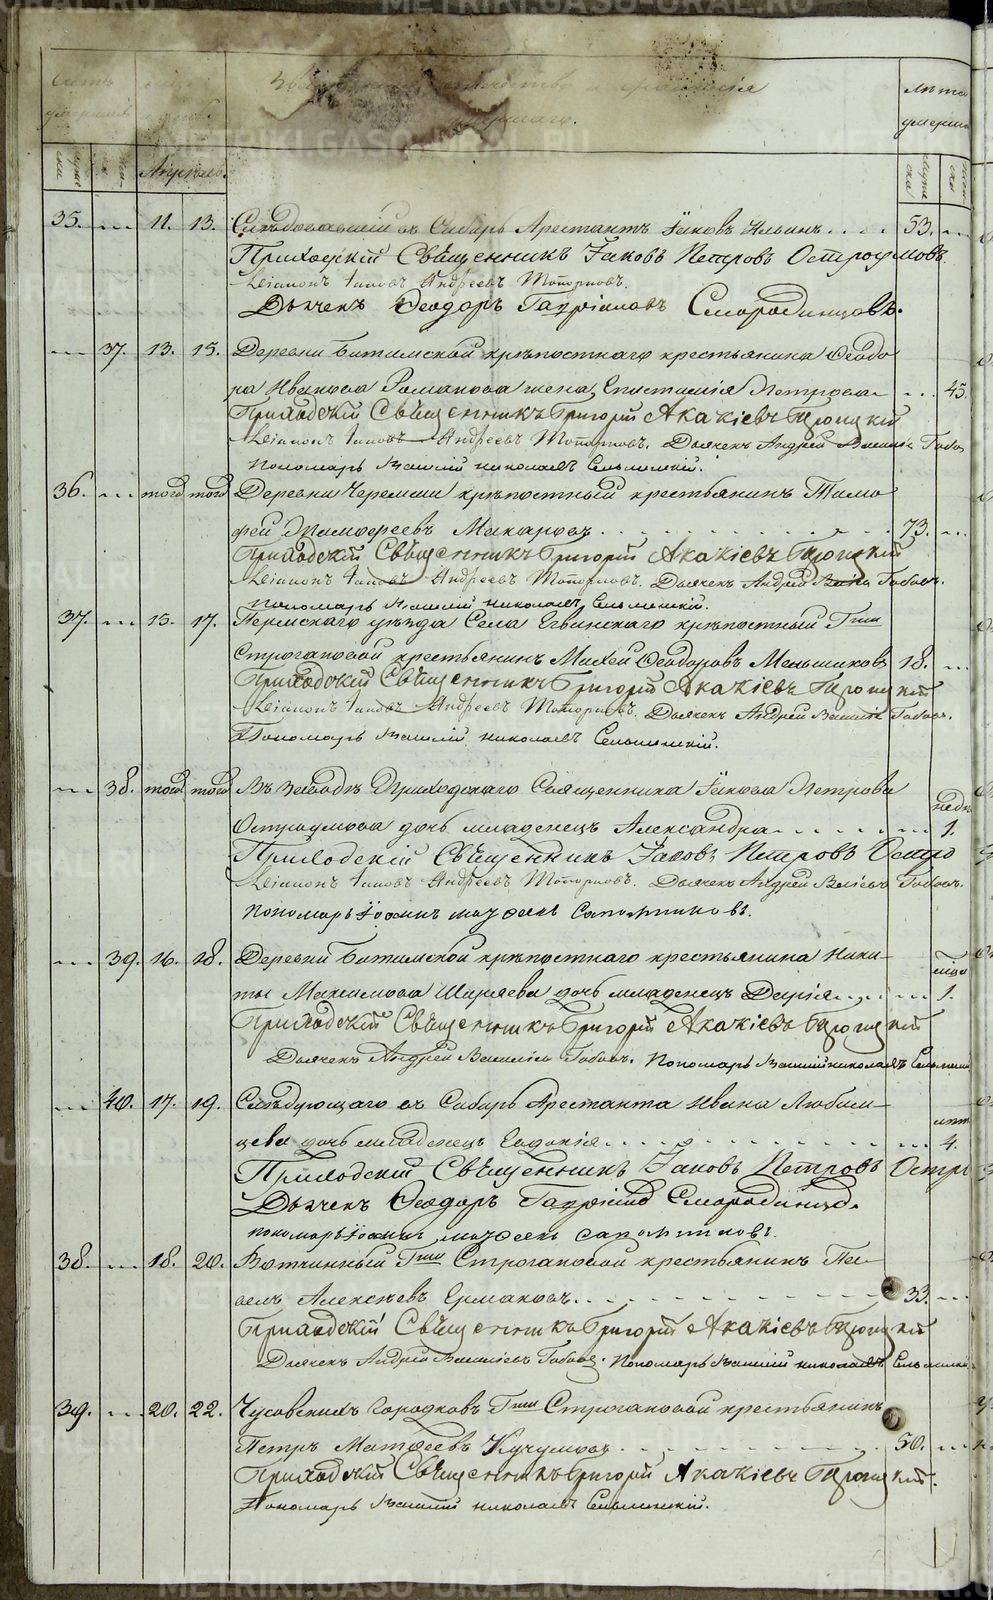 METRIKI.GASO-URAL.RU
Счетъ умершихъ
Званіе
лѣта умерш
Апрѣль.
35. 11. 13. Слѣдовавшій въ Сибирь Арестантъ Іаковъ Ильинъ 53.
Приходскій Священникъ Іаковъ Петровъ Остроумовъ
Діаконъ Іаковъ Андреевъ Топорковъ.
Дьячекъ Ѳеодоръ Гавріиловъ Смородинцовъ.
37. 13. 15. Деревни Битимской крѣпостнаго крестьянина Ѳеодо
ра Иванова Романова жена Епистимія Петрова 45.
Приходскій Священникъ Григорій Акакіевъ Троицкій
Діаконъ Іаковъ Андреевъ Топорковъ. Дьячекъ Андрей
Пономарь Василій Николаевъ Сельменскій.
36. того того Деревни Черемши крѣпостный крестьянинъ Тимо
фей Тимофеевъ Макаровъ 73.
Приходскій Священникъ Григорій Акакіевъ Троицкій
Діаконъ Іаковъ Андреевъ Топорковъ. Дьячекъ Андрей
Пономарь Василій Николаевъ Сельменскій.
37. 15. 17. Пермскаго уѣзда Села Егвинскаго крѣпостный Гжи
Строгановой крестьянинъ Михей Ѳеодоровъ Меньшиковъ 18.
Приходскій Священникъ Григорій Акакіевъ Троицкій
Діаконъ Іаковъ Андреевъ Топорковъ. Дьячекъ Андрей
Пономарь Василій Николаевъ Сельменскій.
38. того того Въ Заводѣ Приходскаго Священника Іакова Петрова
недѣ
Остроумова дочь младенецъ Александра 1.
Приходскій Священникъ Іаковъ Петровъ Остро
Діаконъ Іаковъ Андреевъ Топорковъ. Дьячекъ Андрей
Пономарь Іоаннъ Сапожниковъ.
39. 16. 18. Деревни Битимской крѣпостнаго крестьянина Ники-
ты Максимова Ширяева дочь младенецъ Дарія 1.
Приходскій Священникъ Григорій Акакіевъ Троицкій
Дьячекъ Андрей Пономарь Василій Николаевъ
40. 17. 19. Слѣдующаго въ Сибирь Арестанта Ивана Любим-
цева дочь младенецъ Евдокія 4.
Приходскій Священникъ Іаковъ Петровъ Остро
Дьячекъ Ѳеодоръ
Пономарь Іоаннъ Сапожниковъ.
38. 18. 20. Вотчинный Гжи Строгановой крестьянинъ Па-
велъ Алексѣевъ Ермаковъ 33.
Приходскій Священникъ Григорій Акакіевъ Троицкій
Дьячекъ Андрей Пономарь Василій Николаевъ
39. 20. 22. Чусовскихъ Городковъ Гжи Строгановой крестьянинъ
Петръ Матѳеевъ Кучумовъ 50.
Приходскій Священникъ Григорій Акакіевъ Троицкій.
Пономарь Василій Николаевъ Сельменскій.
METRIKI.GASO-URAL.RU